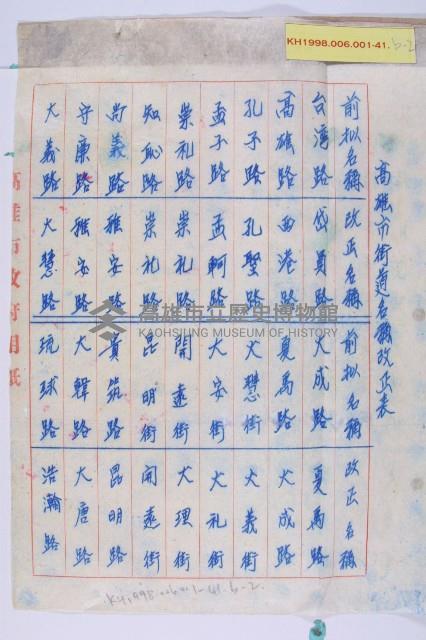 KH1998.006.001-41.b-2
高雄市街道名稱改正表
前拟名稱 改正名稱 前拟名稱 改正名稱
台湾路 岱員路 大成路 夏禹路
高雄路 西港路 夏禹路 大成路
孔子路 孔聖路 大慧街 大義街
孟子路 孟軻路 大安街 大礼街
崇礼路 崇礼路 開遠街 大理街
知恥路 崇礼路 昆明街 開遠街
尚義路 雅安路 貴筑路 昆明路
守廉路 雅安路 大輯路 大唐路
大義路 大慧路 琉球路 浩瀚路
高雄市政府用紙
高雄市立歷史博物館
KAOHSIUNG MUSEUM OF HISTORY
KH1998.006.001-41.b-2.